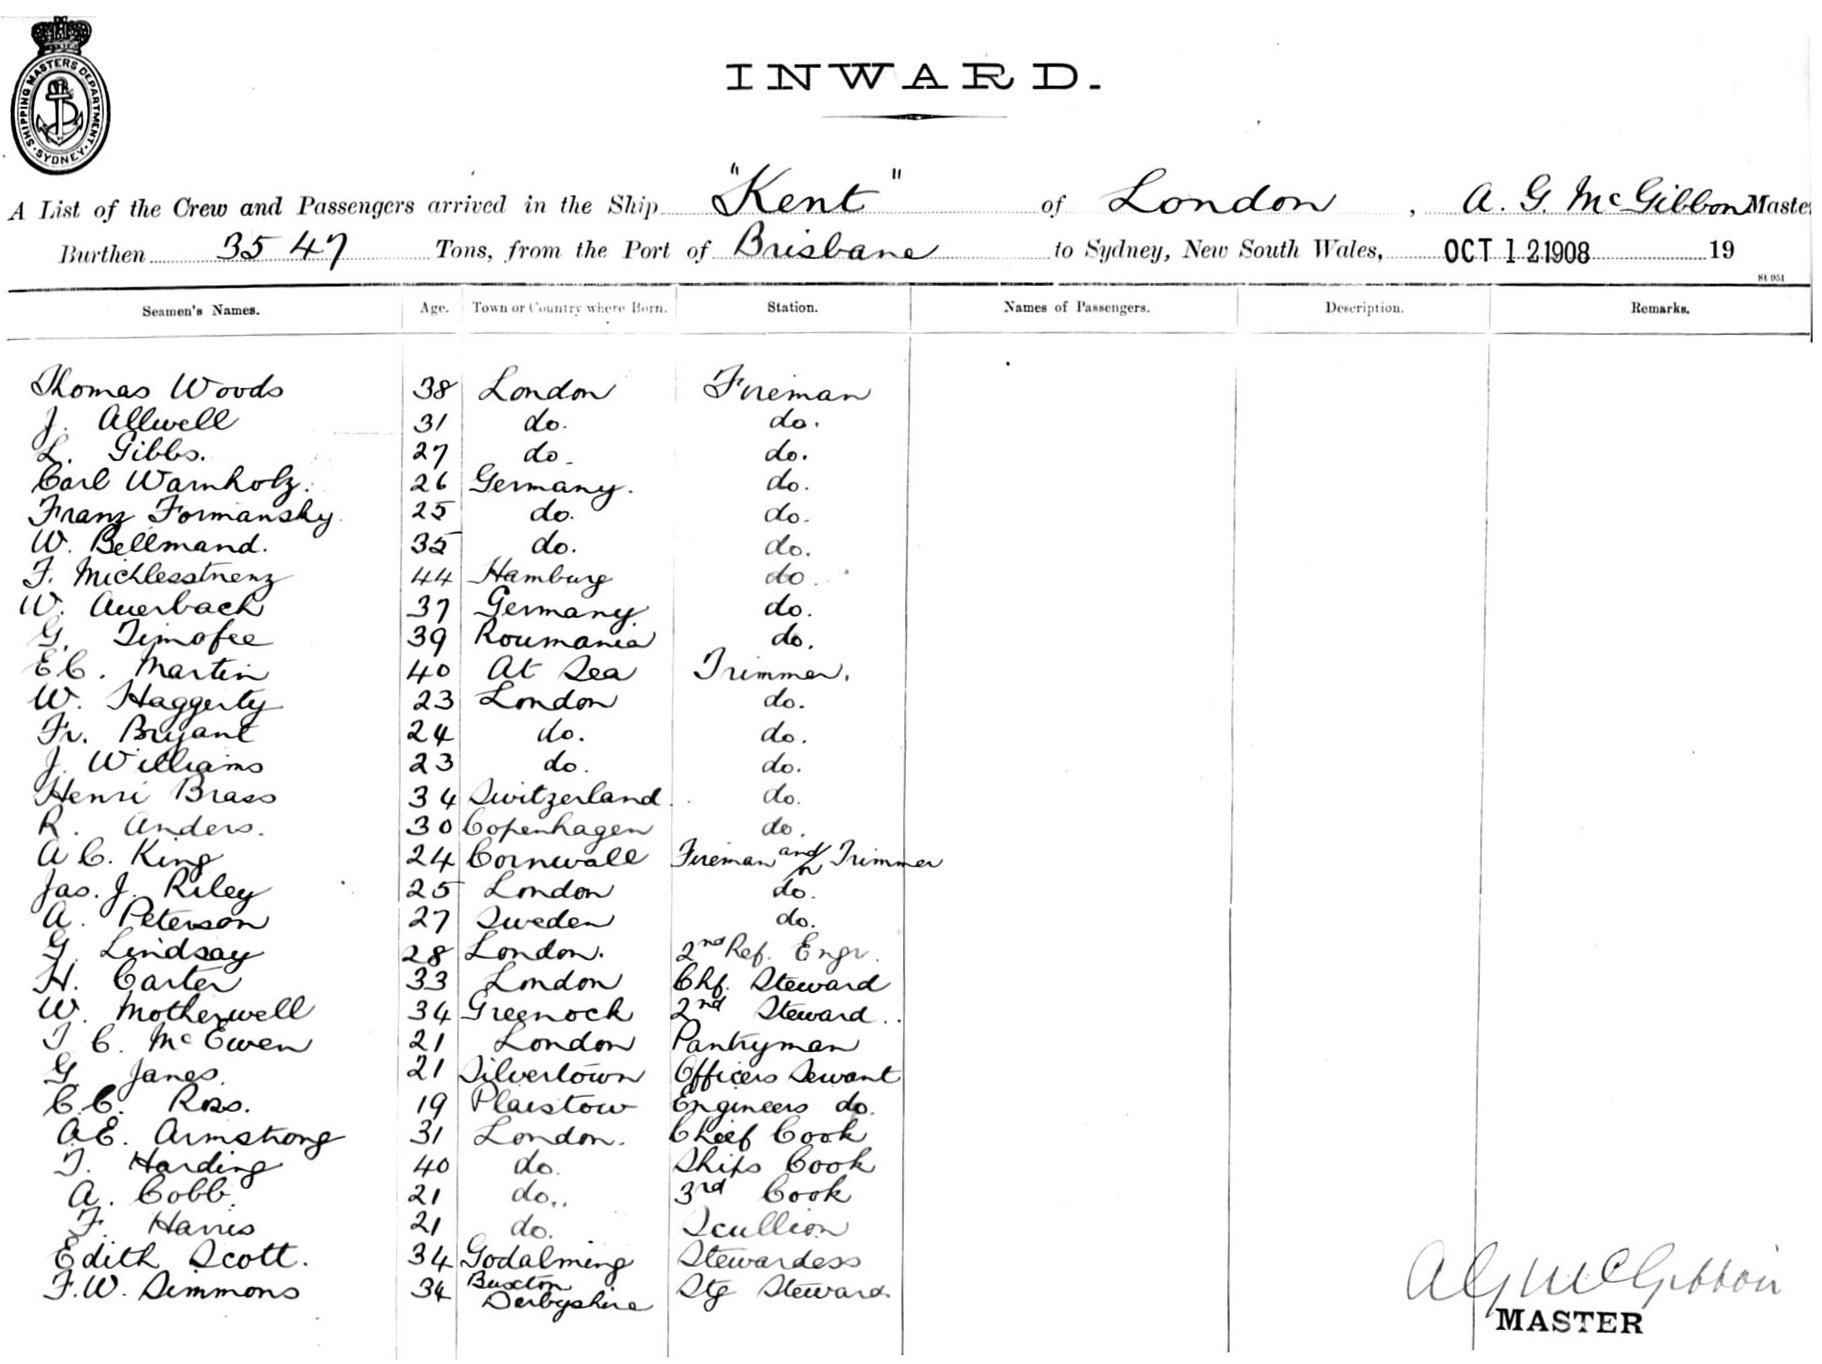 SHIPPING MASTERS DEPARTMENT
SYDNEY
INWARD.
A List of the Crew and Passengers arrived in the Ship "Kent" of London, A. G. McGibbon Master
Burthen 3547 Tons, from the Port of Brisbane to Sydney, New South Wales, OCT 12 1908 19
St 951
Seamen's Names. Age. Town or Country where Born. Station. Names of Passengers. Description. Remarks.
Thomas Woods 38 London Fireman
J. Allwell 31 do. do.
L. Gibbs. 27 do. do.
Carl Warnholz. 26 Germany. do.
Franz Formansky 25 do. do.
W. Bellmand. 35 do. do.
F. 44 Hamburg do.
W. Auerbach 37 Germany. do.
G. Timofee 39 Roumania do.
E.C. Martin 40 At Sea Trimmer.
W. Haggerty 23 London do.
Fr. Bryant 24 do. do.
J. Williams 23 do. do.
Henri Brass 34 Switzerland. do.
R. Anders. 30 Copenhagen do.
A C. King 24 Cornwall Fireman and Trimmer
Jas. J. Riley 25 London do.
A. Peterson 27 Sweden do.
G. Lindsay 28 London. 2nd Ref. Engr.
H. Carter 33 London Chf. Steward
W. Motherwell 34 Greenock 2nd Steward.
T C. McEwen 21 London Pantryman
G Janes. 21 Silvertown Officers Servant
C.C. Ross. 19 Plaistow Engineers do.
A.E. Armstrong 31 London. Chief Cook
T. Harding 40 do. Ships Cook
A. Cobb. 21 do. 3rd Cook
F. Harris 21 do. Scullion
Edith Scott. 34 Godalming Stewardess
F.W. Simmons 34 Buxton Derbyshire Stg Steward.
A G McGibbon
MASTER